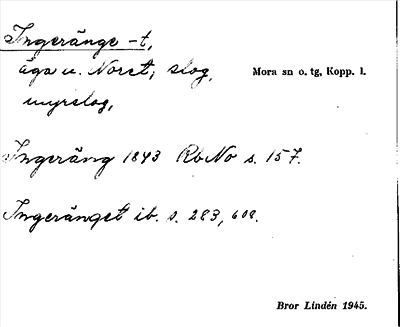 Ingeränge -t,
äga u. Noret; slog,
Mora sn o. tg, Kopp. l.
myrslog,
Ingeräng 1843 Rb No s. 157.
Ingeränget ib. s. 283, 608.
Bror Lindén 1945.